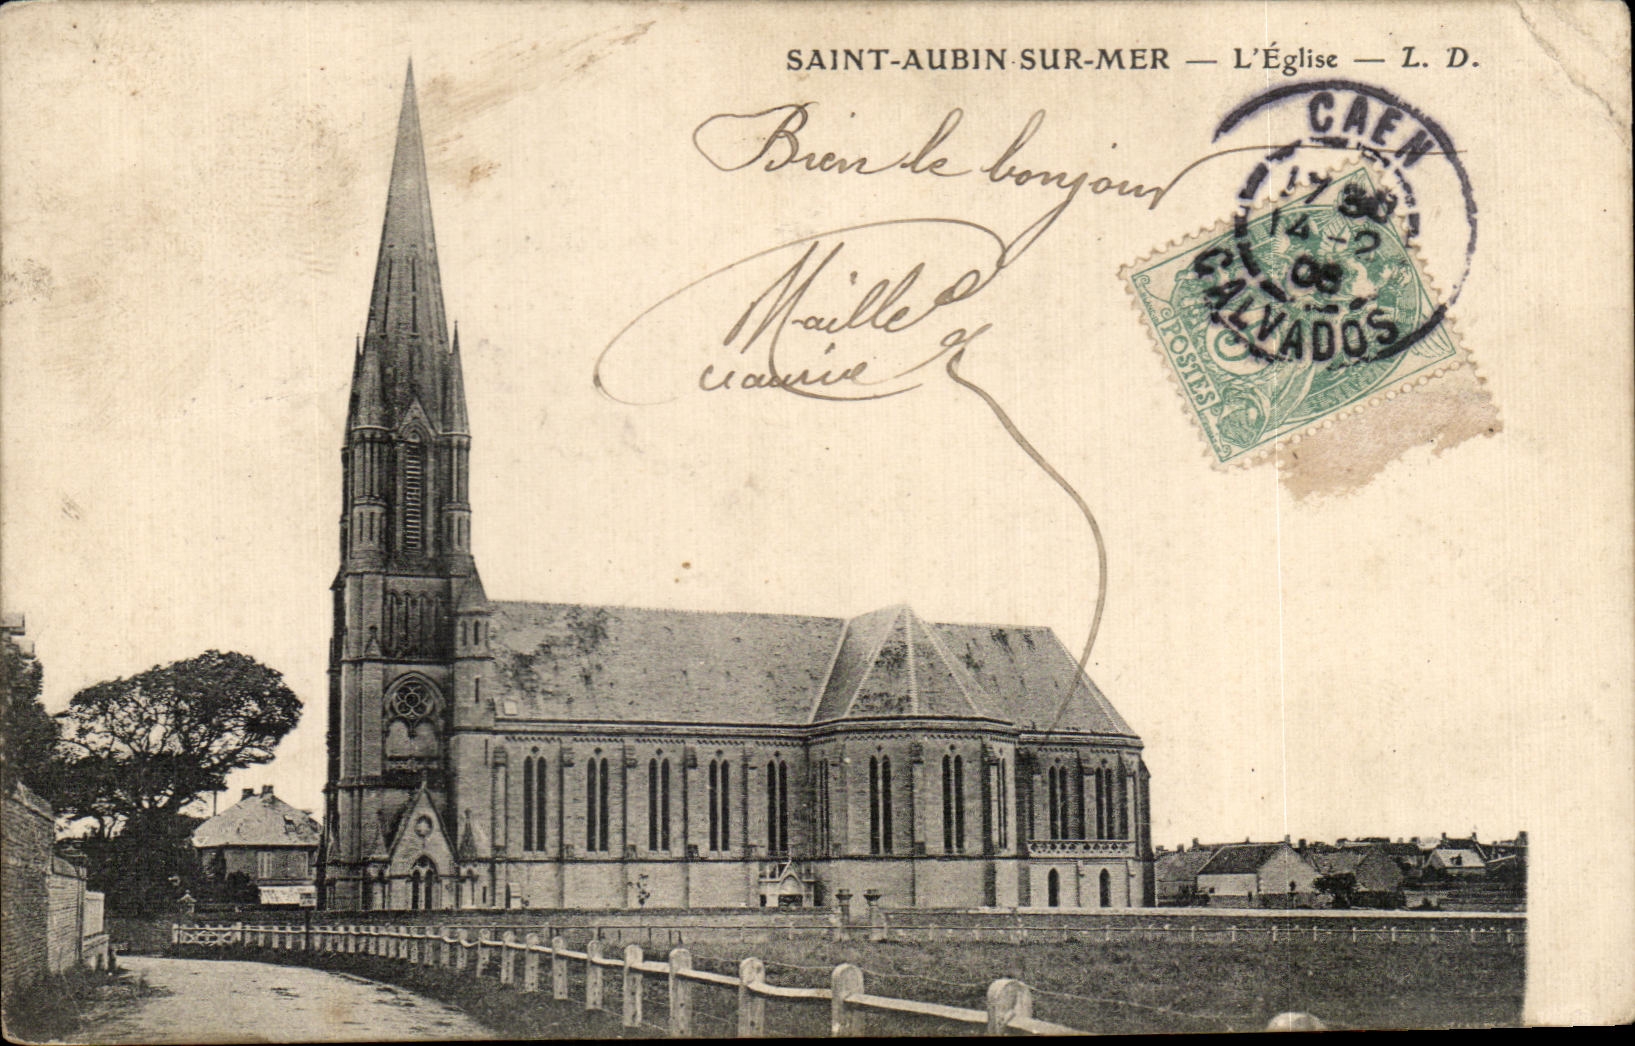 SAINT-AUBIN-SUR-MER — L'Église — L. D.
Bien le bonjour
Maille
CAEN
17 30
14 - 2
CALVADOS
POSTES